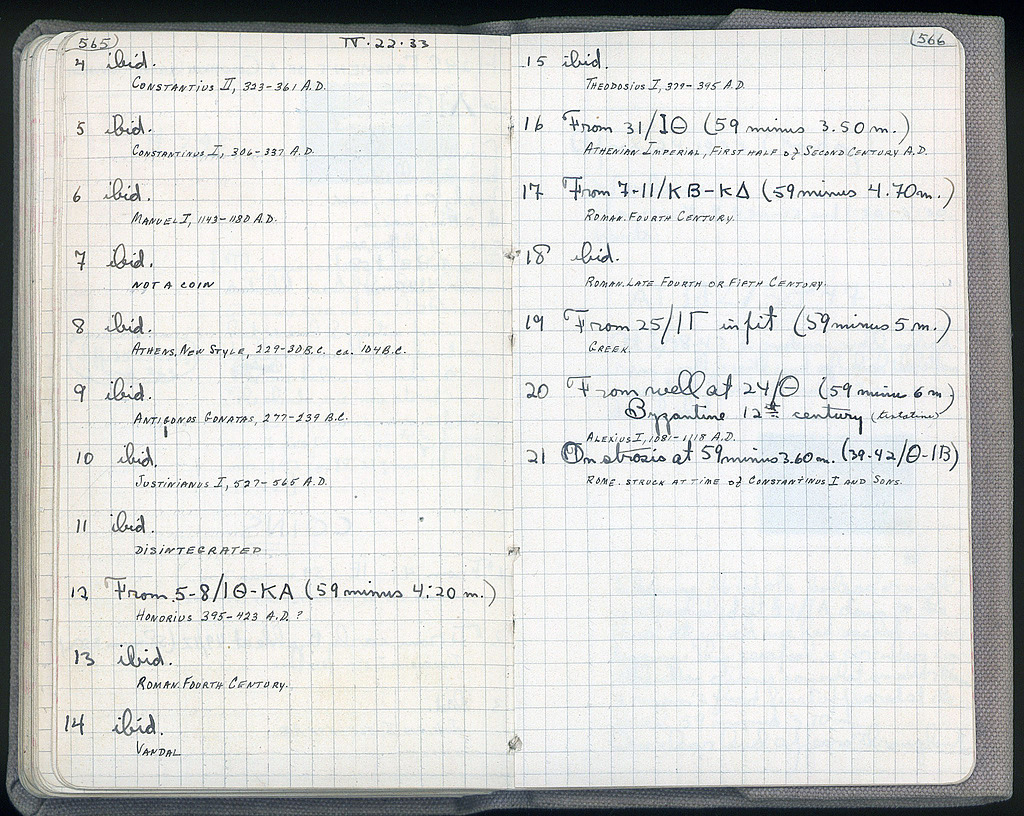 565
IV·22·33
4 ibid.
CONSTANTIUS II, 323-361 A.D.
5 ibid.
CONSTANTINUS I, 306-337 A.D.
6 ibid.
MANUEL I, 1143-1180 A.D.
7 ibid.
NOT A COIN
8 ibid.
ATHENS, NEW STYLE, 229-30 B.C. ca. 104 B.C.
9 ibid.
ANTIGONOS GONATAS, 277-239 B.C.
10 ibid.
JUSTINIANUS I, 527-565 A.D.
11 ibid.
DISINTEGRATED
12 From 5-8/ΙΘ-ΚΑ (59 minus 4.20 m.)
HONORIUS 395-423 A.D.?
13 ibid.
ROMAN. FOURTH CENTURY.
14 ibid.
VANDAL
566
15 ibid.
THEODOSIUS I, 379-395 A.D.
16 From 31/ΙΘ (59 minus 3.50 m.)
ATHENIAN IMPERIAL, FIRST HALF of SECOND CENTURY A.D.
17 From 7-11/ΚΒ-ΚΔ (59 minus 4.70 m.)
ROMAN. FOURTH CENTURY.
18 ibid.
ROMAN. LATE FOURTH OR FIFTH CENTURY.
19 From 25/ΙΓ in pit (59 minus 5 m.)
GREEK.
20 From well at 24/Θ (59 minus 6 m.)
Byzantine 12th century
ALEXIUS I, 1081-1118 A.D.
21 On stosis at 59 minus 3.60 m. (39-42/Θ-ΙΒ)
ROME. STRUCK AT TIME of CONSTANTINUS I AND SONS.